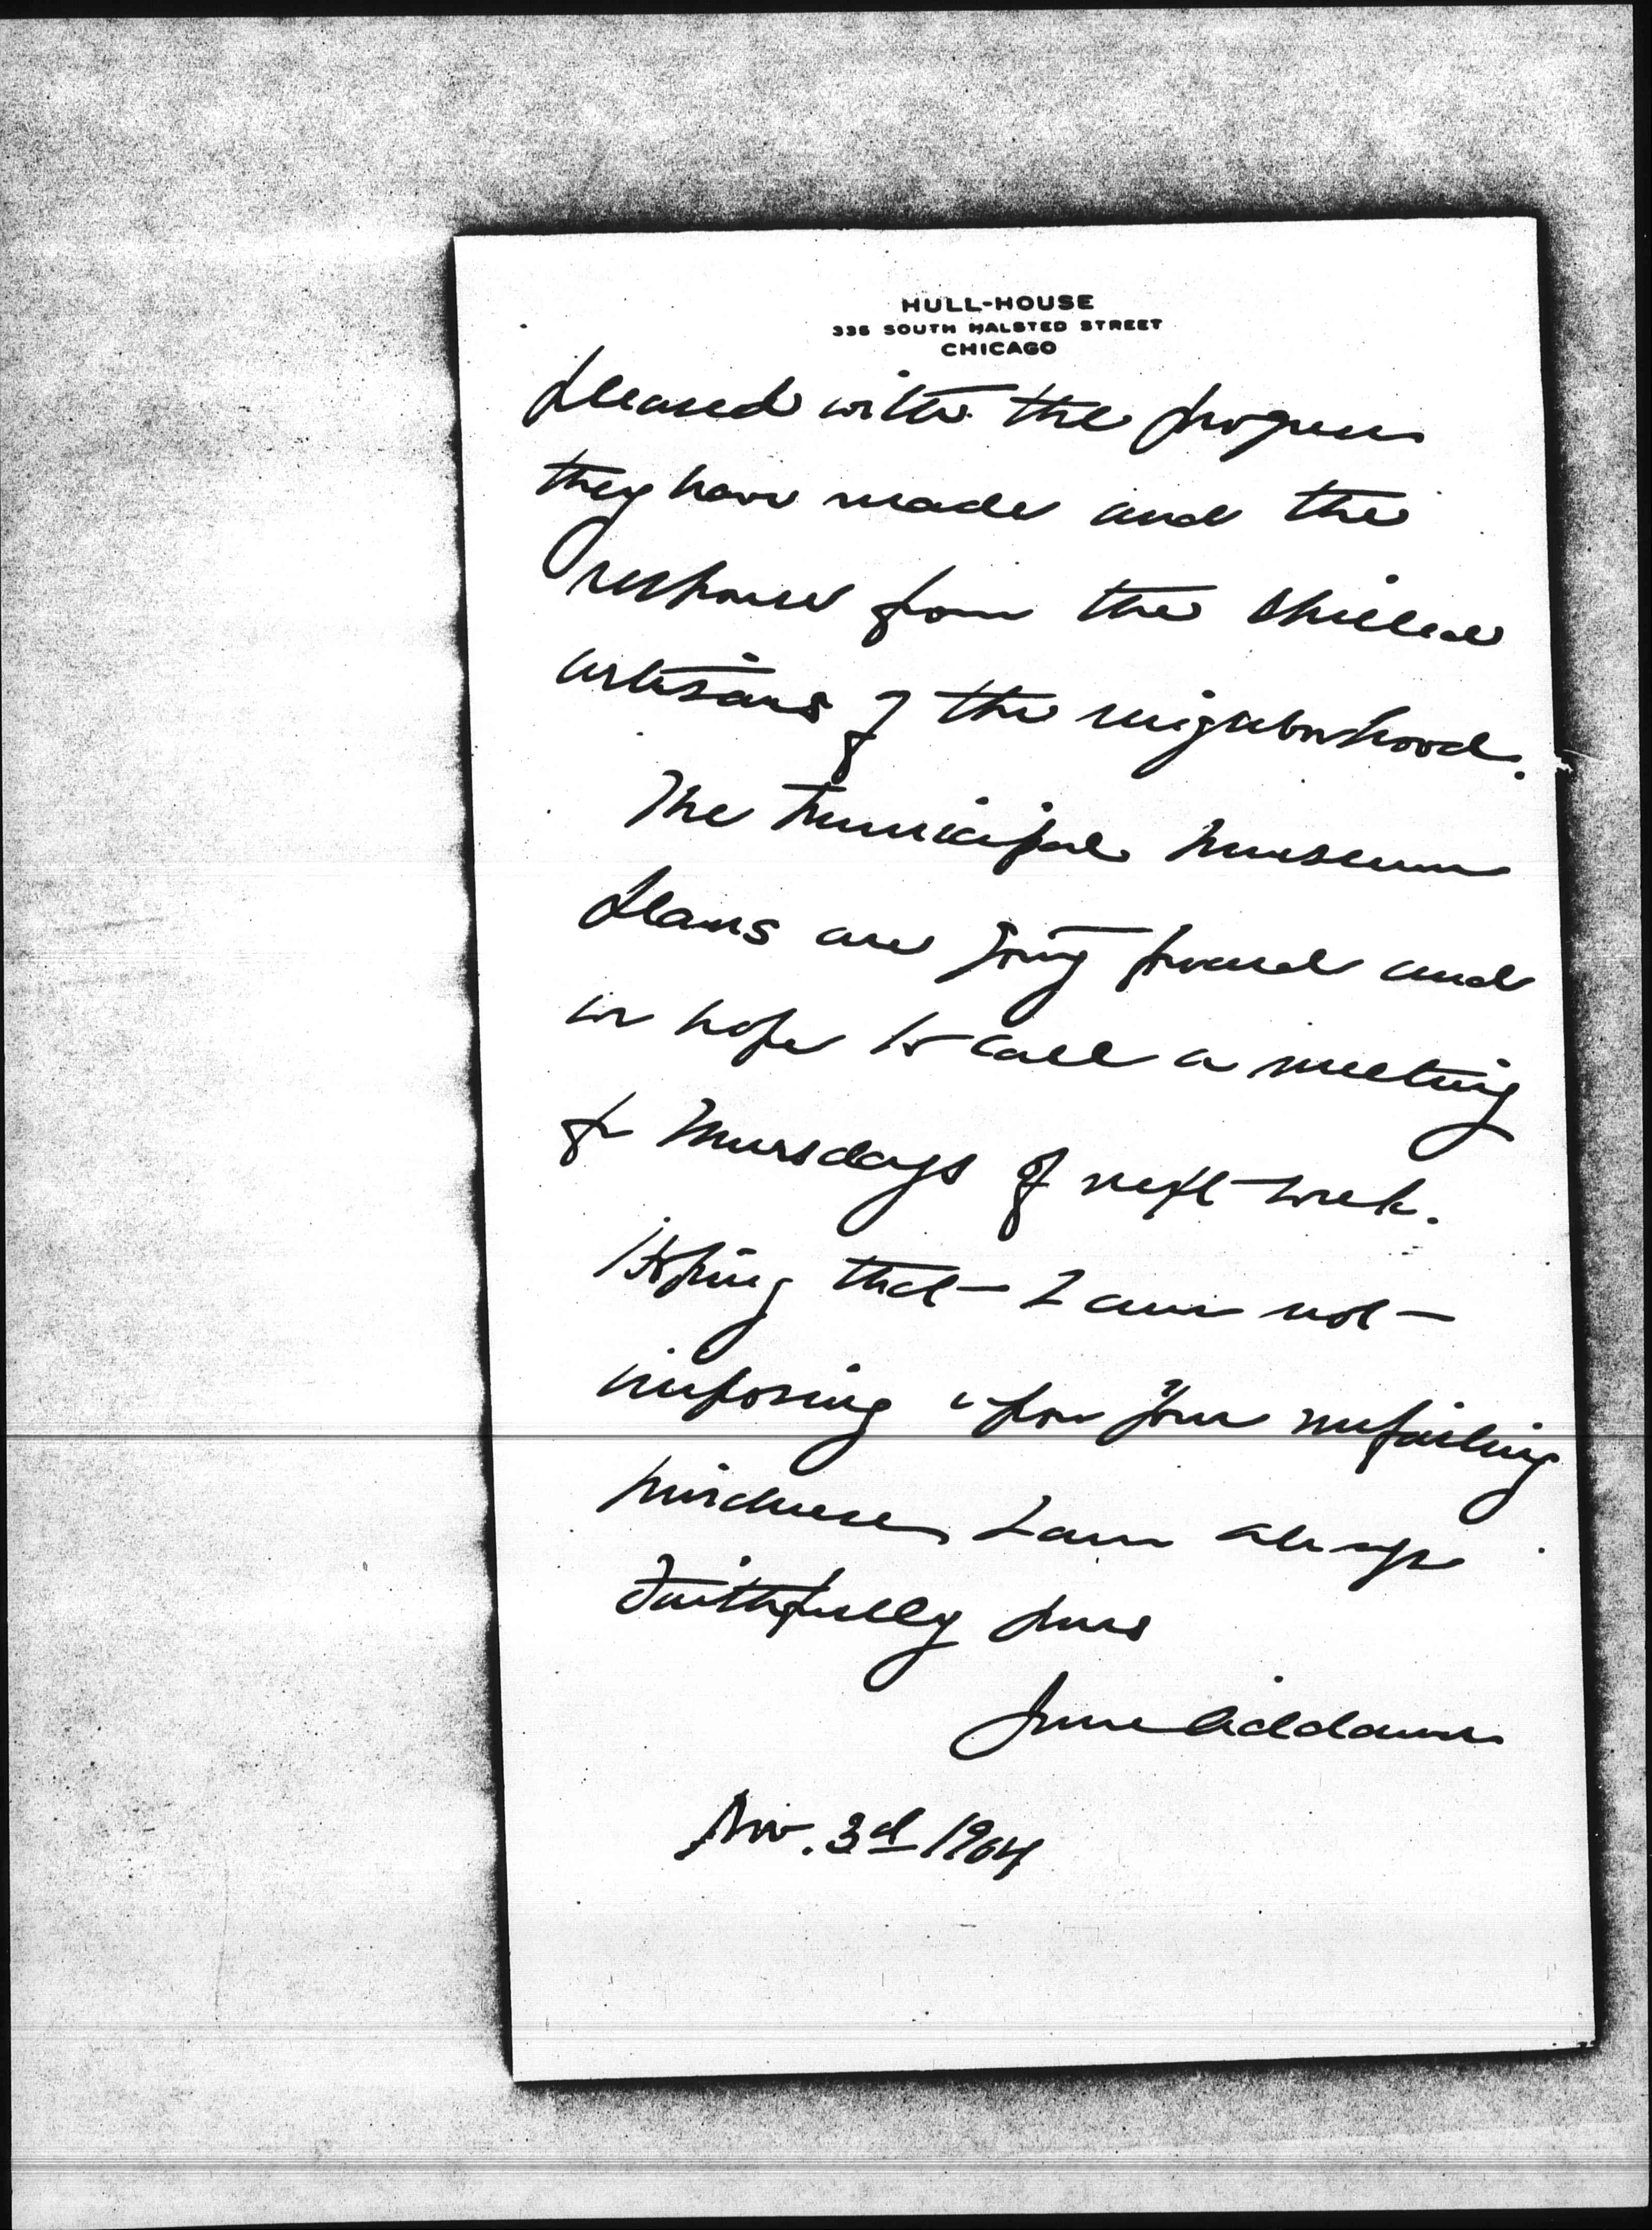 HULL-HOUSE
336 SOUTH HALSTED STREET
CHICAGO
pleased with the progress
they have made and the
response from the skilled
artisans of the neighborhood.
The Municipal Museum
plans are going forward and
we hope to call a meeting
for Thursday of next week.
Hoping that I am not
imposing upon your unfailing
kindness, I am always
Faithfully yours
Jane Addams
Nov. 3d 1904